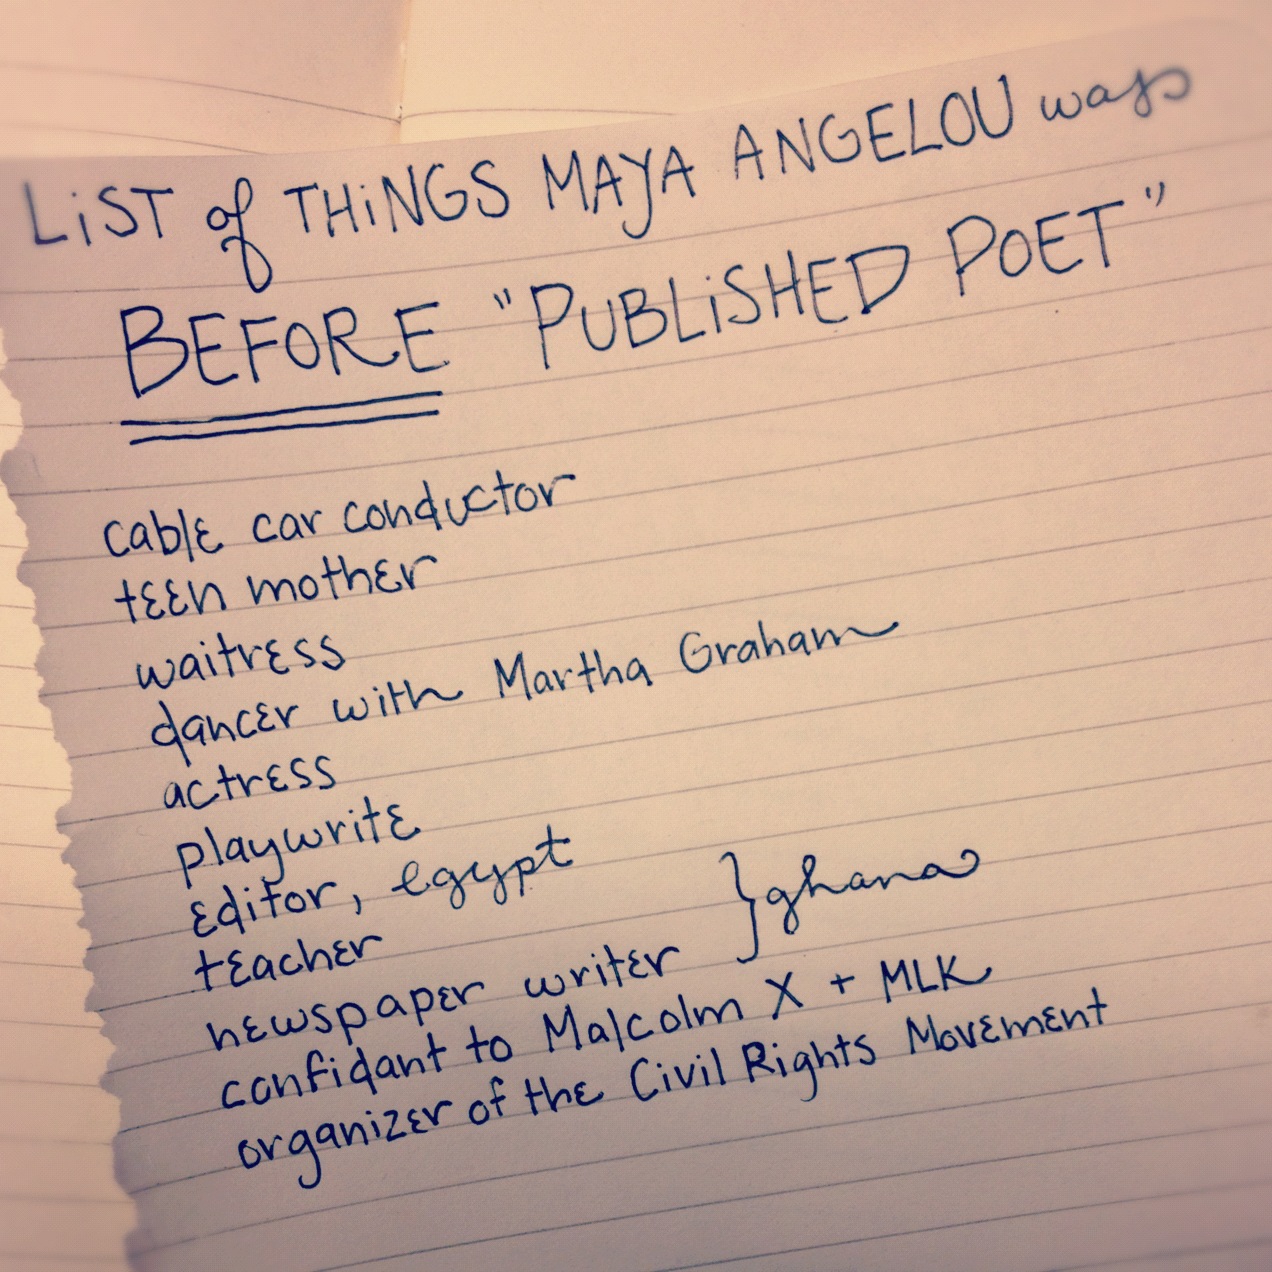 LiST of THiNGS MAYA ANGELOU was
BEFORE "PUBLiSHED POET"
cable car conductor
teen mother
waitress
dancer with Martha Graham
actress
playwrite
editor, egypt
teacher
newspaper writer } ghana
confidant to Malcolm X + MLK
organizer of the Civil Rights Movement